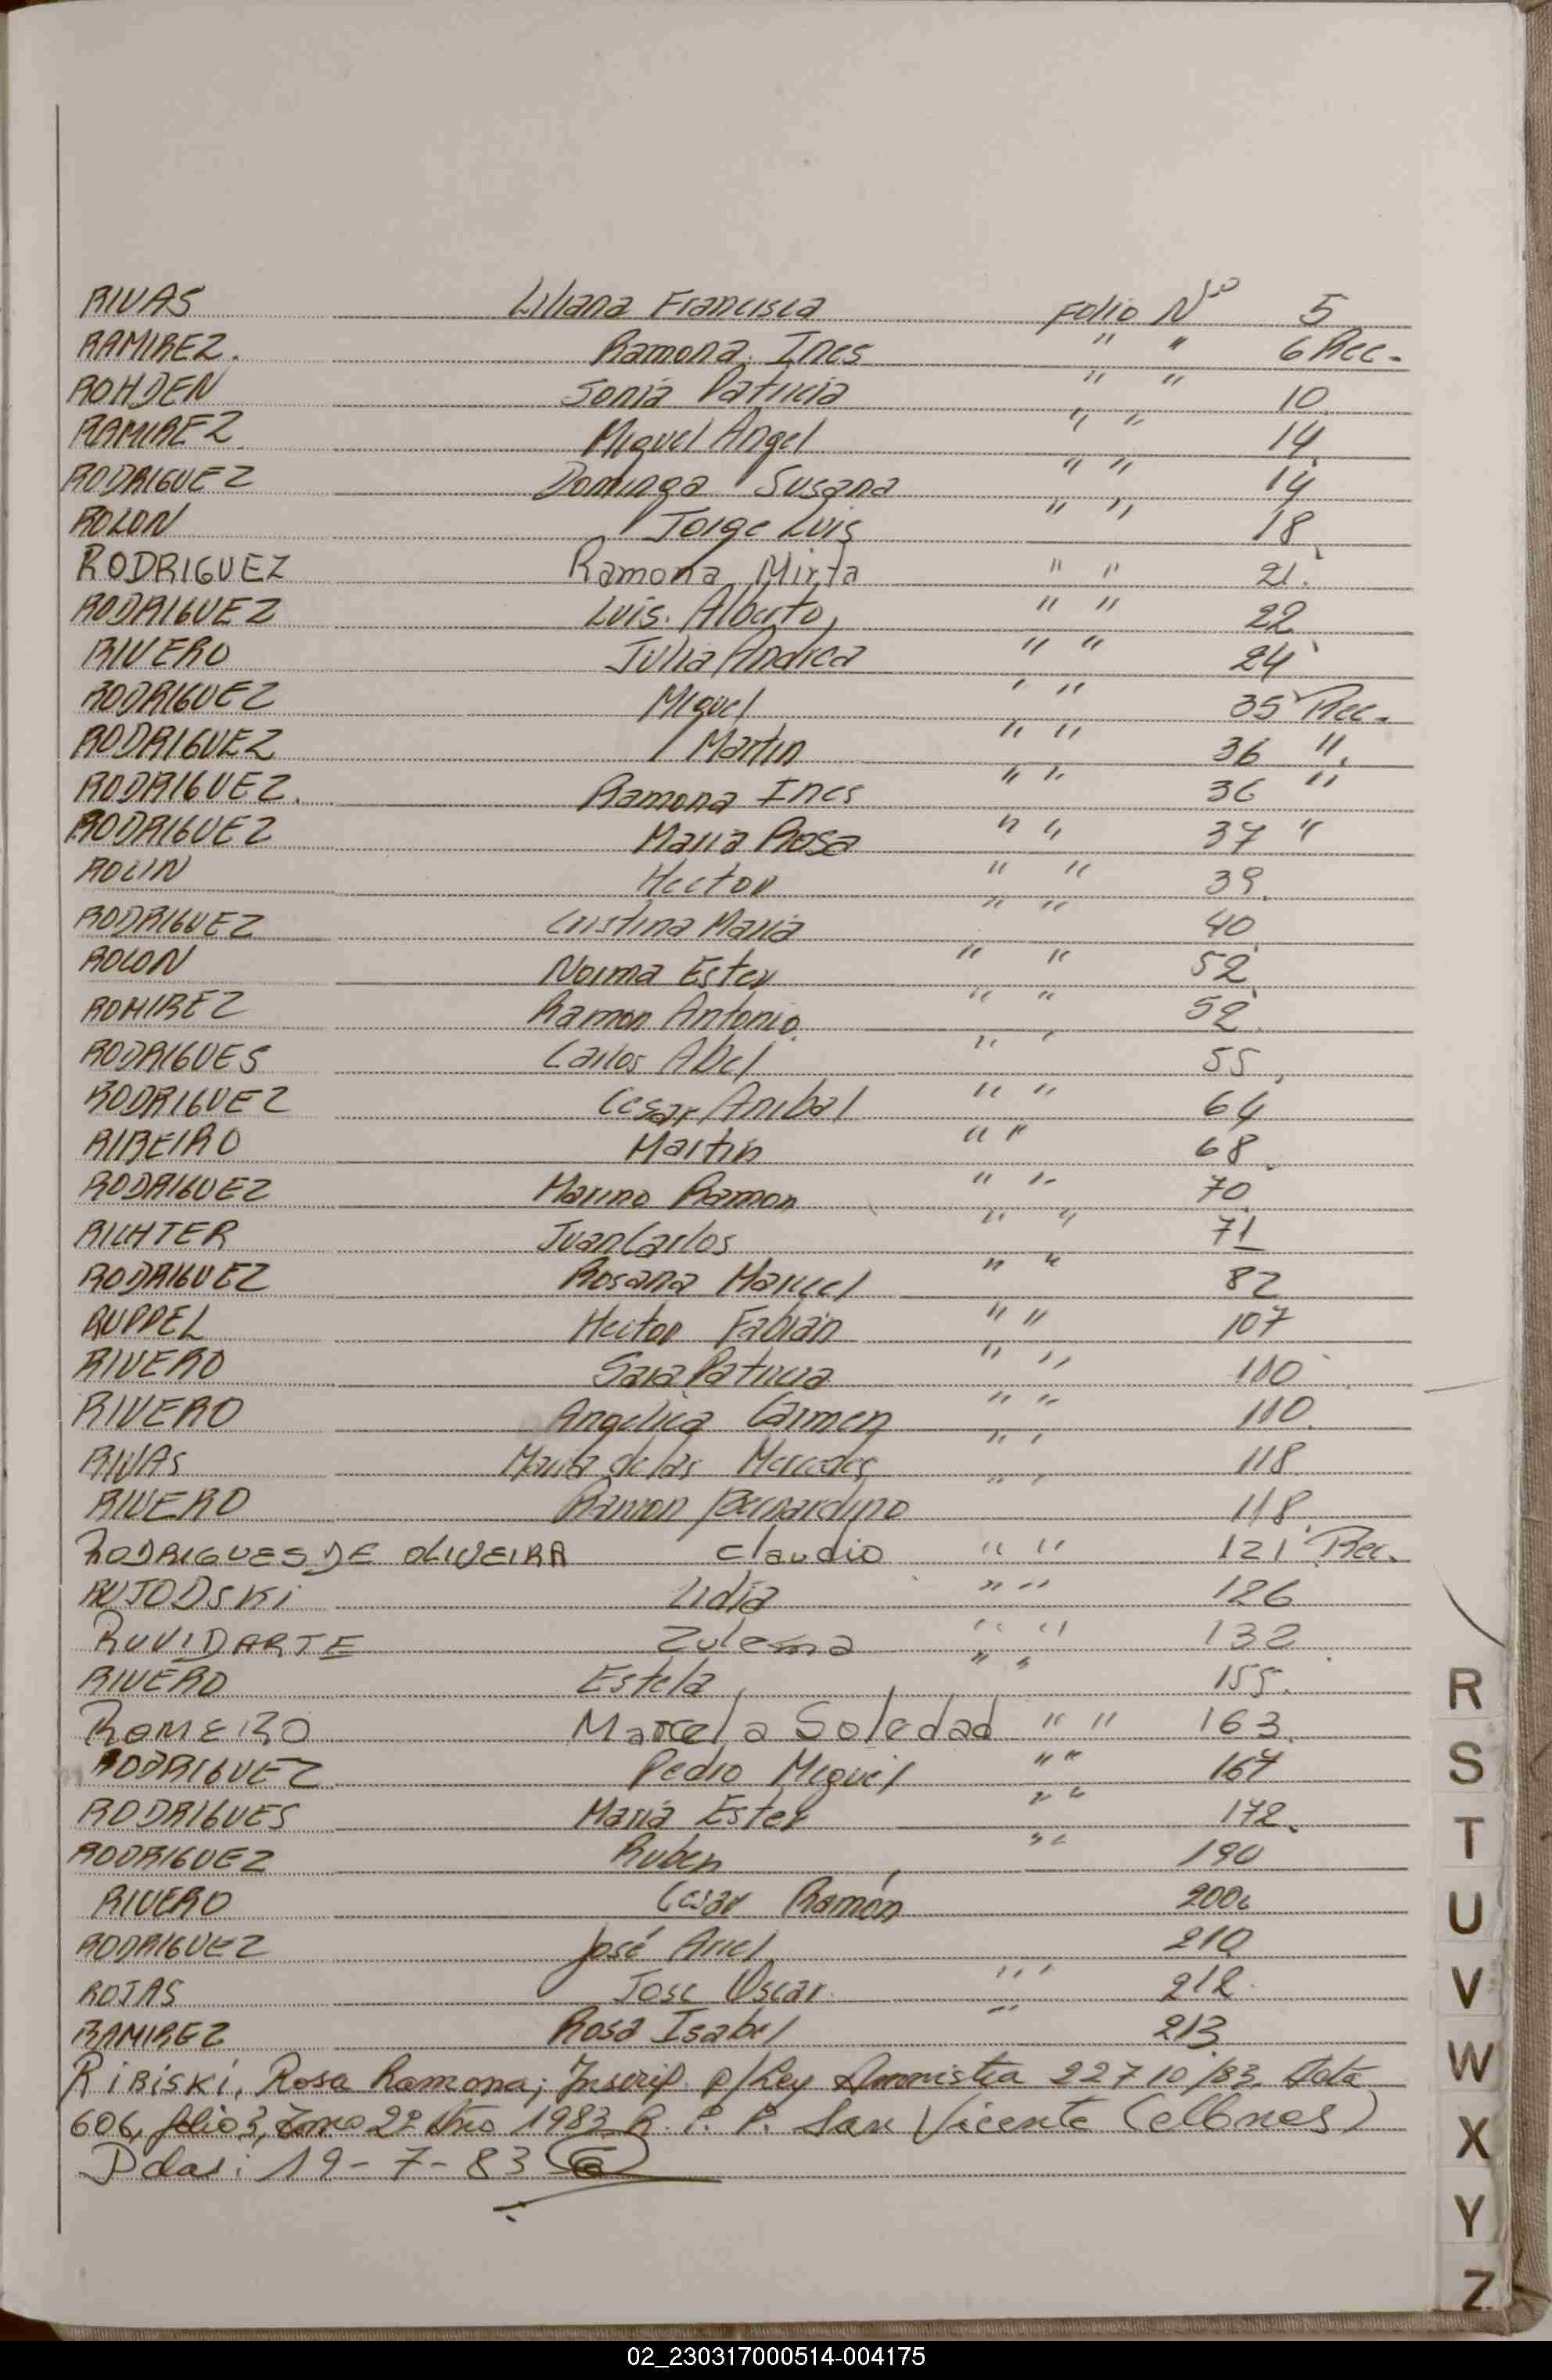 RIVAS Liliana Francisca Folio Nº 5
RAMIREZ. Ramona Ines " " 6 Rec.
ROHDEN Sonia Patricia " " 10.
RAMIREZ Miguel Angel " " 14
RODRIGUEZ Dominga Susana " " 14
ROLON Jorge Luis " " 18
RODRIGUEZ Ramona Mirta " " 21.
RODRIGUEZ Luis. Alberto, " " 22
RIVERO Julia Andrea " " 24
RODRIGUEZ Miguel " " 35 Rec.
RODRIGUEZ Martin " " 36 ".
RODRIGUEZ. Ramona Ines " " 36 "
RODRIGUEZ Maria Rosa " " 37 "
ROLIN Hector " " 39.
RODRIGUEZ Cristina Maria " " 40
ROLON Norma Ester " " 52
ROMIREZ Ramon Antonio. " " 52.
RODRIGUES Carlos Abel " " 55.
RODRIGUEZ Cesar Anibal " " 64
RIBEIRO Martin " " 68.
RODRIGUEZ Marino Ramon " " 70.
RICHTER Juan Carlos " " 71
RODRIGUEZ Rosana Maricel " " 82
RUPPEL Hector Fabián " " 107
RIVERO Sara Patricia " " 110
RIVERO Angelica Carmen " " 110.
RIVAS Maria de las Mercedes " " 118.
RIVERO Ramon Bernardino " " 118.
RODRIGUES DE OLIVEIRA Claudio " " 121 Rec.
RUJODSKi Lidia " " 126
RUVIDARTE Zulema " " 132.
RIVERO Estela " " 155.
ROMEIRO Marcela Soledad " " 163.
RODRIGUEZ Pedro Miguel " " 167
RODRIGUES Maria Ester " " 172.
RODRIGUEZ Ruben " " 190
RIVERO Cesar Ramón 200
RODRIGUEZ José Ariel 210
ROJAS Jose Oscar " " 212.
RAMIREZ Rosa Isabel " 213.
RiBiSKi, Rosa Ramona; Inscrip. p/Ley Amnistia 22710/83. Acta
606, folio 3, Tomo 2º Año 1983 R. P. P. San Vicente
Pdas: 19-7-83
R
S
T
U
V
W
X
Y
Z
02_230317000514-004175